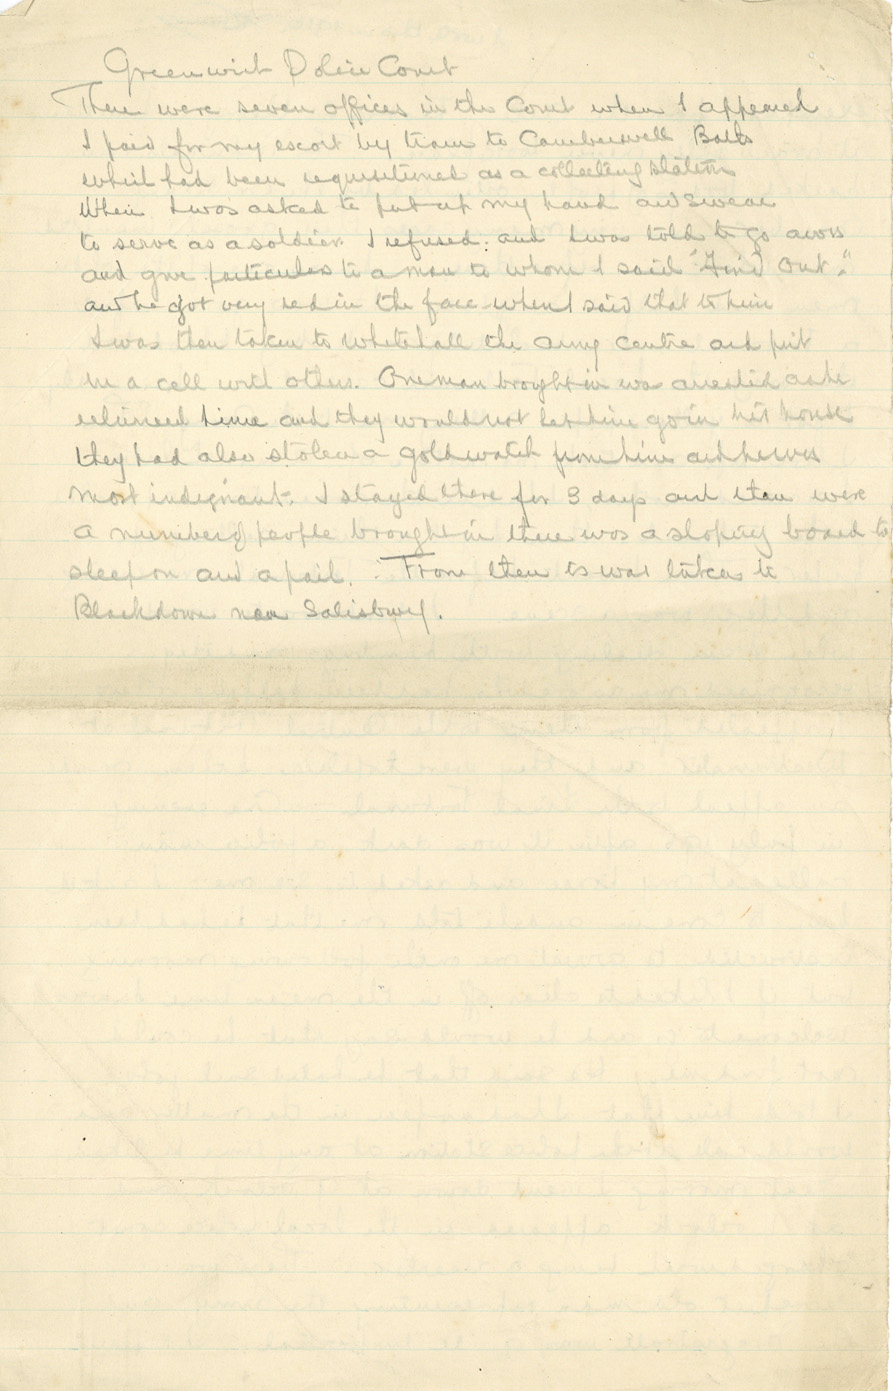 Greenwich Police Court
There were seven offices in the Court when I appeared
I paid for my escort by tram to Camberwell Baths
which had been requisitioned as a collecting station
When I was asked to put up my hand and swear
to serve as a soldier I refused. and I was told to go across
and give particulars to a man to whom I said "Find Out".
and he got very red in the face when I said that to him
I was then taken to Whitehall the army centre and put
in a cell with others. One man brought in was arrested as he
returned home and they would not let him go in his house
they had also stolen a gold watch from him and he was
most indignant. I stayed there for 3 days and there were
a number of people brought in there was a sloping board to
sleep on and a pail. From there I was taken to
Blackdown near Salisbury.